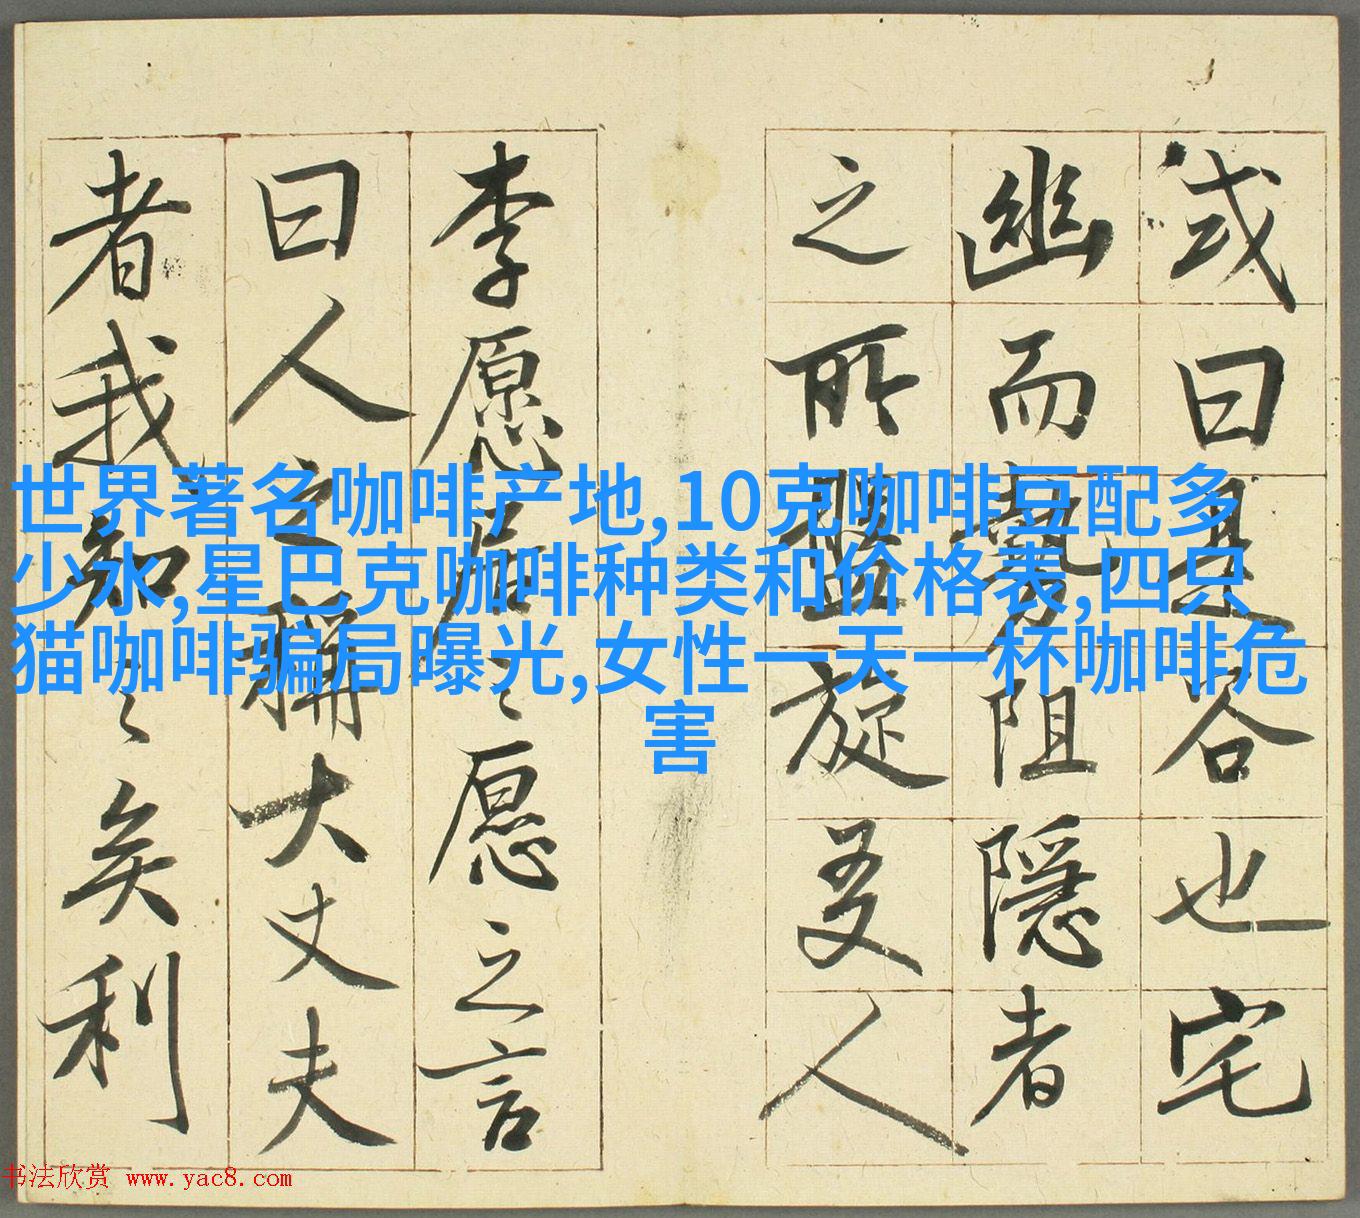 或曰是谷也宅
幽而勢阻隱者
之所盤旋友人
李愿居之愿之言
曰人之稱大丈夫
者我知之矣利
世界著名咖啡产地,10克咖啡豆配多
少水,星巴克咖啡种类和价格表,四只
猫咖啡骗局曝光,女性一天一杯咖啡危
害
书法欣赏 www.yac8.com